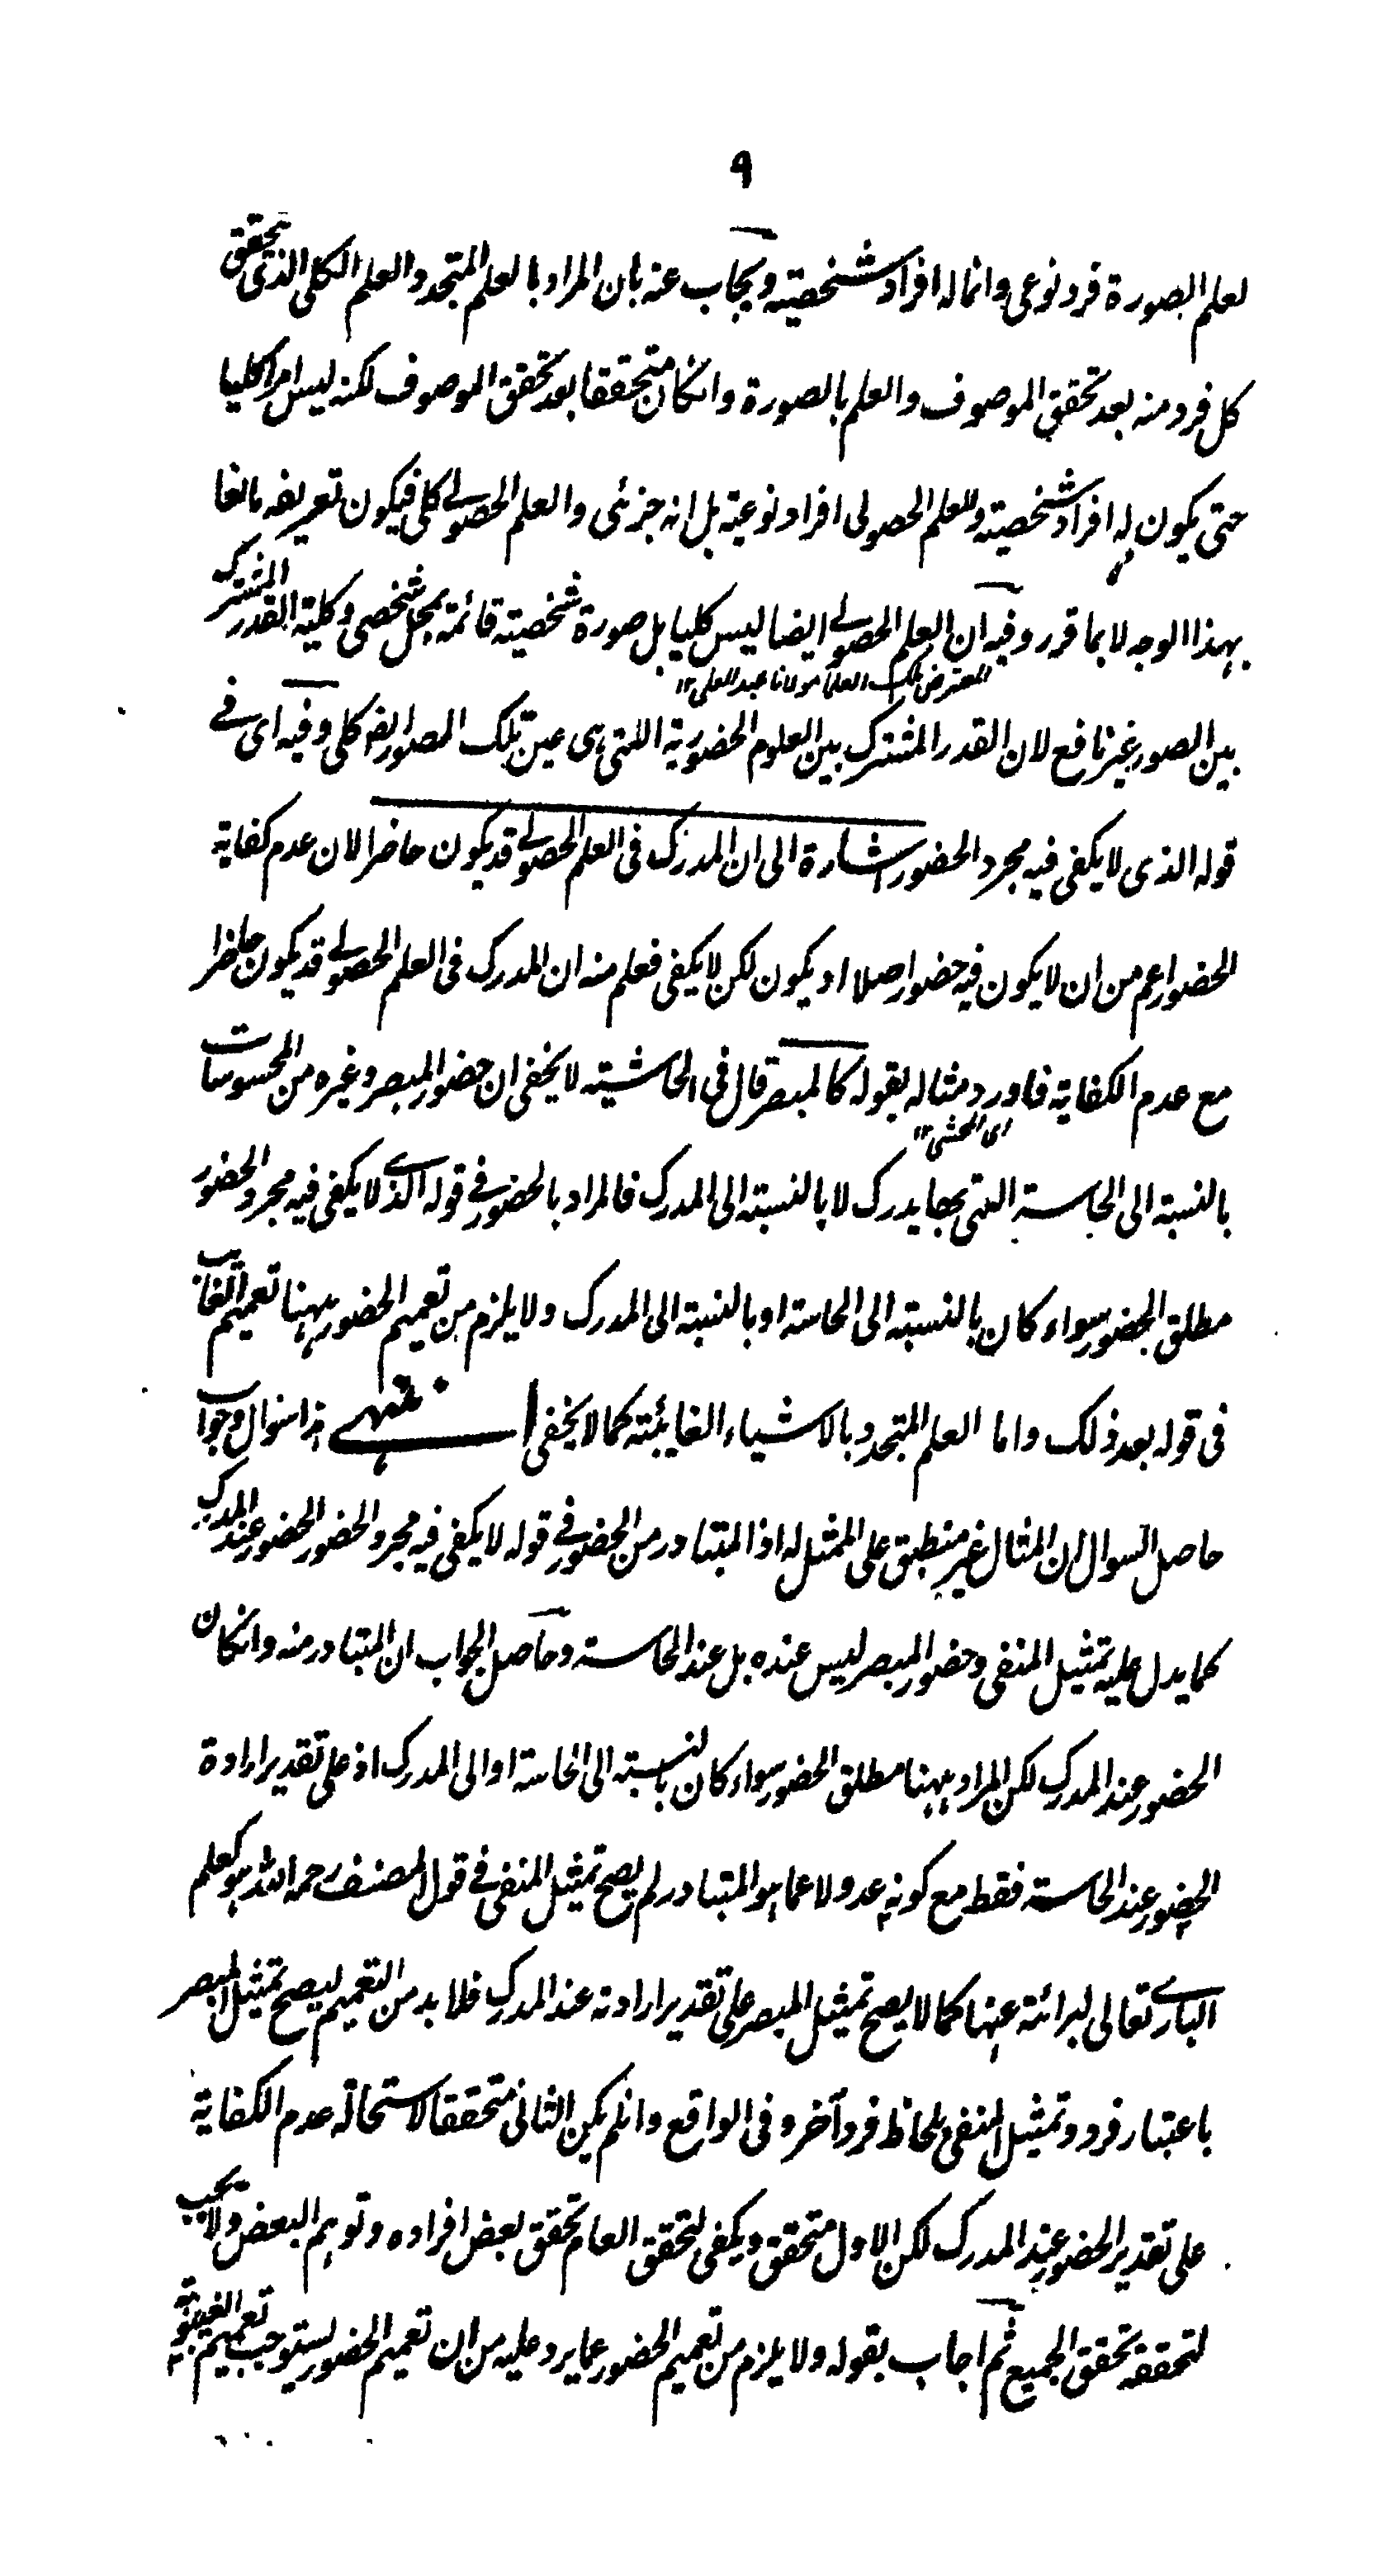 ٩
لعلم الصورة فرد نوعى وانما له افراد شخصية ويجاب عنه بان المراد بالعلم المتجدد العلم الكلى الذى تحقق
كل فرد منه بعد تحقق الموصوف والعلم بالصورة وانكان متحققا بعد تحقق الموصوف لكنه ليس امرا كليا
حتى يكون له افراد شخصية وللعلم الحصولى افراد نوعية بل انه جزئى والعلم الحصولى كلى فيكون تعريفه مانعا
بهذا الوجه لا بما قرر وفيه ان العلم الحصولى ايضا ليس كليا بل صورة شخصية قائمة بمحل شخصى وكلية القدر المشترك
المعترض ملك العلما مولانا عبد العلى ١٢
بين الصور غير نافع لان القدر المشترك بين العلوم الحضورية اللتى هى عين تلك الصور ايضا كلى وفيه اى فى
قوله الذى لا يكفى فيه مجرد الحضور اشارة الى ان المدرك فى العلم الحصولى قد يكون حاضرا لان عدم كفاية
الحضور اعم من ان لا يكون فيه حضور اصلا او يكون لكن لا يكفى فعلم منه ان المدرك فى العلم الحصولى قد يكون حاضرا
مع عدم الكفاية فاورد مثاله بقوله كالمبصر قال فى الحاشية لا يخفى ان حضور المبصر وغيره من المحسوسات
اى المحشى ١٢
بالنسبة الى الحاسة التى بها يدرك لا بالنسبة الى المدرك فالمراد بالحضور فى قوله الذى لا يكفى فيه مجرد الحضور
مطلق الحضور سواء كان بالنسبة الى الحاسة او بالنسبة الى المدرك ولا يلزم من تعميم الحضور ههنا تعميم الغائب
فى قوله بعد ذلك واما العلم المتجدد بالاشياء الغائبة كما لا يخفى انتهى هذا سوال وجواب
حاصل السوال ان المثال غير منطبق على الممثل له اذ المتبادر من الحضور فى قوله لا يكفى فيه مجرد الحضور الحضور عند المدرك
كما يدل عليه تمثيل المنفى وحضور المبصر ليس عنده بل عند الحاسة وحاصل الجواب ان المتبادر منه وانكان
الحضور عند المدرك لكن المراد ههنا مطلق الحضور سواء كان بالنسبة الى الحاسة او الى المدرك اذ على تقدير ارادة
الحضور عند الحاسة فقط مع كونه عدولا عما هو المتبادر لم يصح تمثيل المنفى فى قول المصنف رحمه الله هو كعلم
البارى تعالى لبرائته عنها كما لا يصح تمثيل المبصر على تقدير ارادته عند المدرك فلا بد من التعميم ليصح تمثيل المبصر
باعتبار فرد وتمثيل المنفى بلحاظ فرد آخر وفى الواقع وانلم يكن الثانى متحققا لاستحالة عدم الكفاية
على تقدير الحضور عند المدرك لكن الاول متحقق ويكفى لتحقق العام تحقق بعض افراده وتوهم البعض ولا يجب
لتحققه تحقق الجميع ثم اجاب بقوله ولا يلزم من تعميم الحضور عما يرد عليه من ان تعميم الحضور يستوجب تعميم الغيبوبة